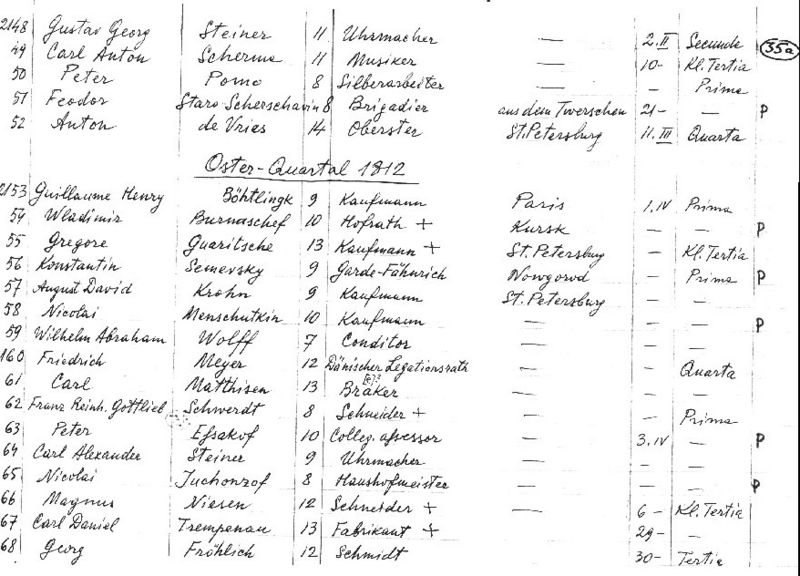 2148 Gustav Georg Steiner 11 Uhrmacher — 2.II Secunde 35a
49 Carl Anton Scherma 11 Musiker — 10- Kl. Tertia
50 Peter Pomo 8 Silberarbeiter — — Prima
51 Feodor Staro-Scherschavin 8 Brigadier aus dem Twerschen 21- — P
52 Anton de Vries 14 Oberster St. Petersburg 11.III Quarta
Oster-Quartal 1812
2153 Guillaume Henry Böhtlingk 9 Kaufmann Paris 1.IV Prima
54 Wladimir Burnaschef 10 Hofrath + Kursk — — P
55 Gregore Guaritsche 13 Kaufmann + St. Petersburg — Kl. Tertia
56 Konstantin Semevsky 9 Garde-Fähnrich Nowgorod — Prima P
57 August David Krohn 9 Kaufmann St. Petersburg — —
58 Nicolai Menschutkin 10 Kaufmann — — — P
59 Wilhelm Abraham Wolff 7 Conditor — — —
160 Friedrich Meyer 12 Dänischer Legationsrath — — Quarta
61 Carl Matthisen 13 Braker — — —
62 Franz Reinh. Gottlieb Schwerdt 8 Schneider + — — Prima
63 Peter Efsakof 10 Colleg. afsessor — 3.IV — P
64 Carl Alexander Steiner 9 Uhrmacher — — —
65 Nicolai Juchonzof 8 Haushofmeister — — — P
66 Magnus Niesen 12 Schneider + — 6- Kl. Tertia
67 Carl Daniel Trempenau 13 Fabrikant + — 29- —
68 Georg Fröhlich 12 Schmidt — 30- Tertia